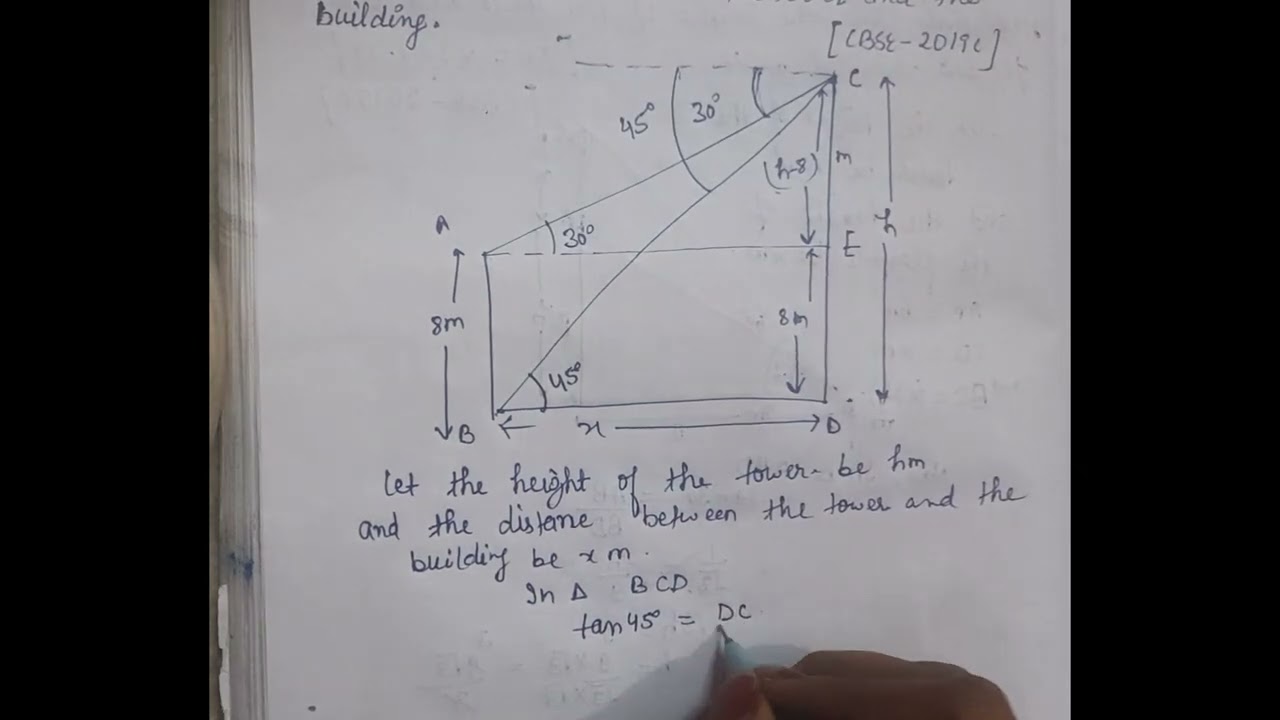 and the
building.
[CBSE-2019C]
C
45°
30°
(h-8)
m
h
A
30°
E
8m
8m
45°
B
x
D
Let the height of the tower be hm
and the distane between the tower and the
building be x m.
In Δ BCD
tan 45° = DC